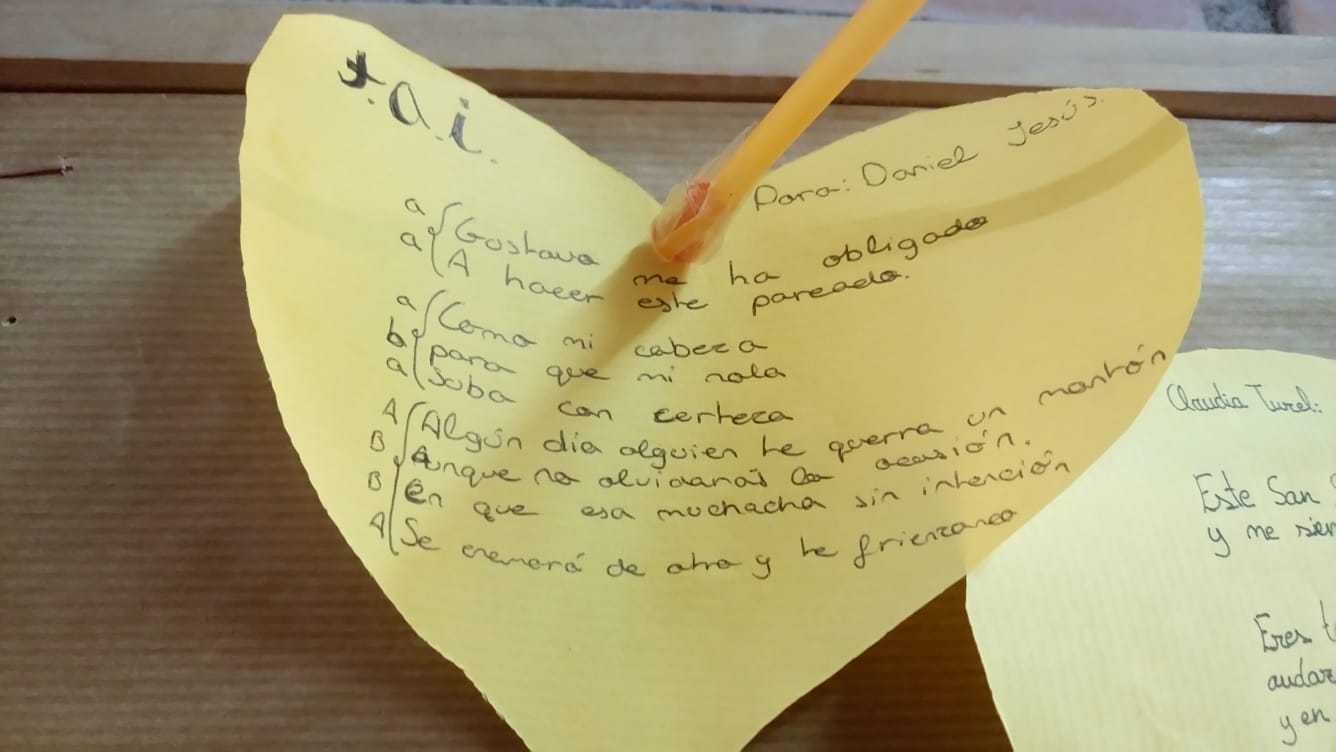 t.a.i.
Para: Daniel Jesús.
a Gustavo me ha obligado
a A hacer este pareado.
a Como mi cabeza
b para que mi nota
a Suba con certeza
A Algún día alguien te querra un montón
B Aunque no olvidaras la ocasión.
B En que esa muchacha sin intención
A Se enamorá de otro y te
Claudia Turel:
Este San
y me sien
Eres t
audaz
y en